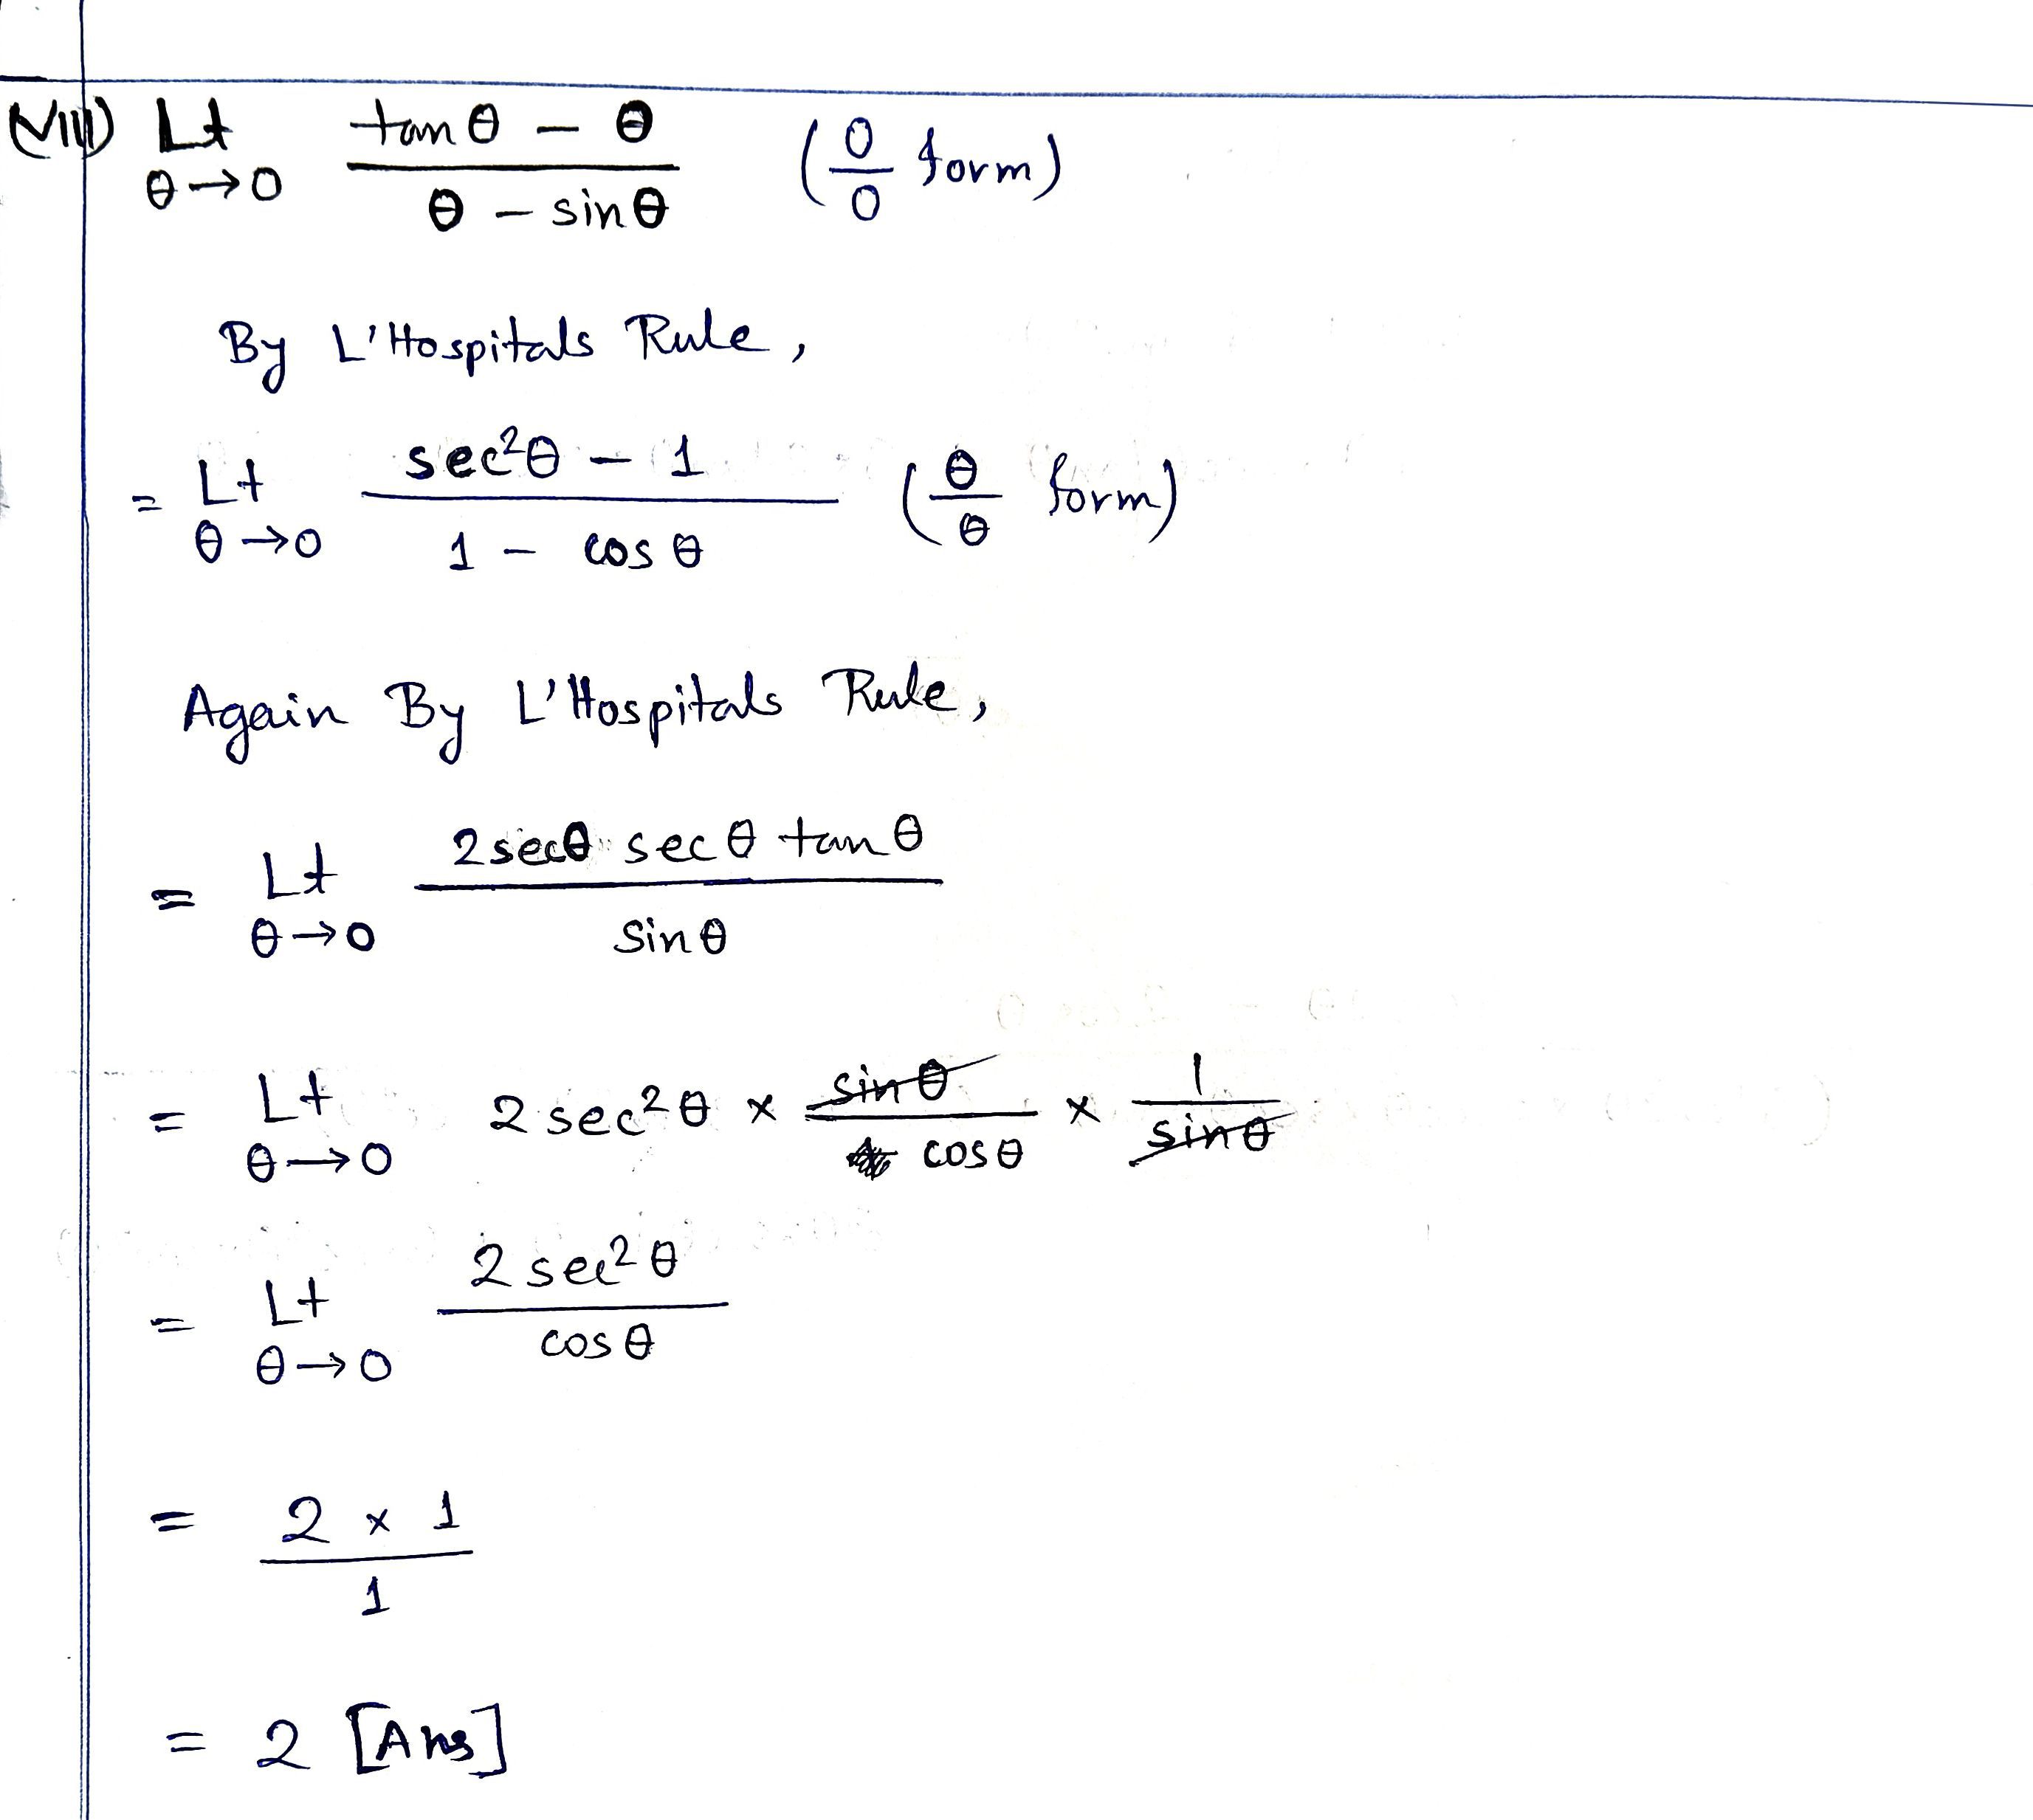 (VIII) Lt θ→0 (tan θ − θ)/(θ − sin θ) (0/0 form)
By L'Hospitals Rule,
= Lt θ→0 (sec²θ − 1)/(1 − cos θ) (θ/θ form)
Again By L'Hospitals Rule,
= Lt θ→0 (2 secθ sec θ tan θ)/(sin θ)
= Lt θ→0 2 sec²θ × sin θ/cos θ × 1/sin θ
= Lt θ→0 (2 sec²θ)/(cos θ)
= (2 × 1)/1
= 2 [Ans]